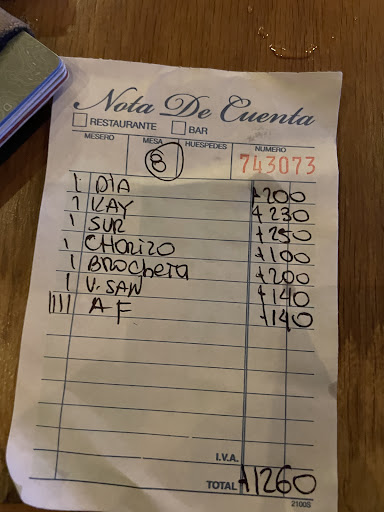 Nota De Cuenta
RESTAURANTE BAR
MESERO MESA HUESPEDES NUMERO
8 743073
1 DIA 200
1 KAY 230
1 SUR 250
1 CHORIZO 100
1 BROCHETA 200
1 V. SAN 140
1111 AF 140
I.V.A.
TOTAL 1260
2100S